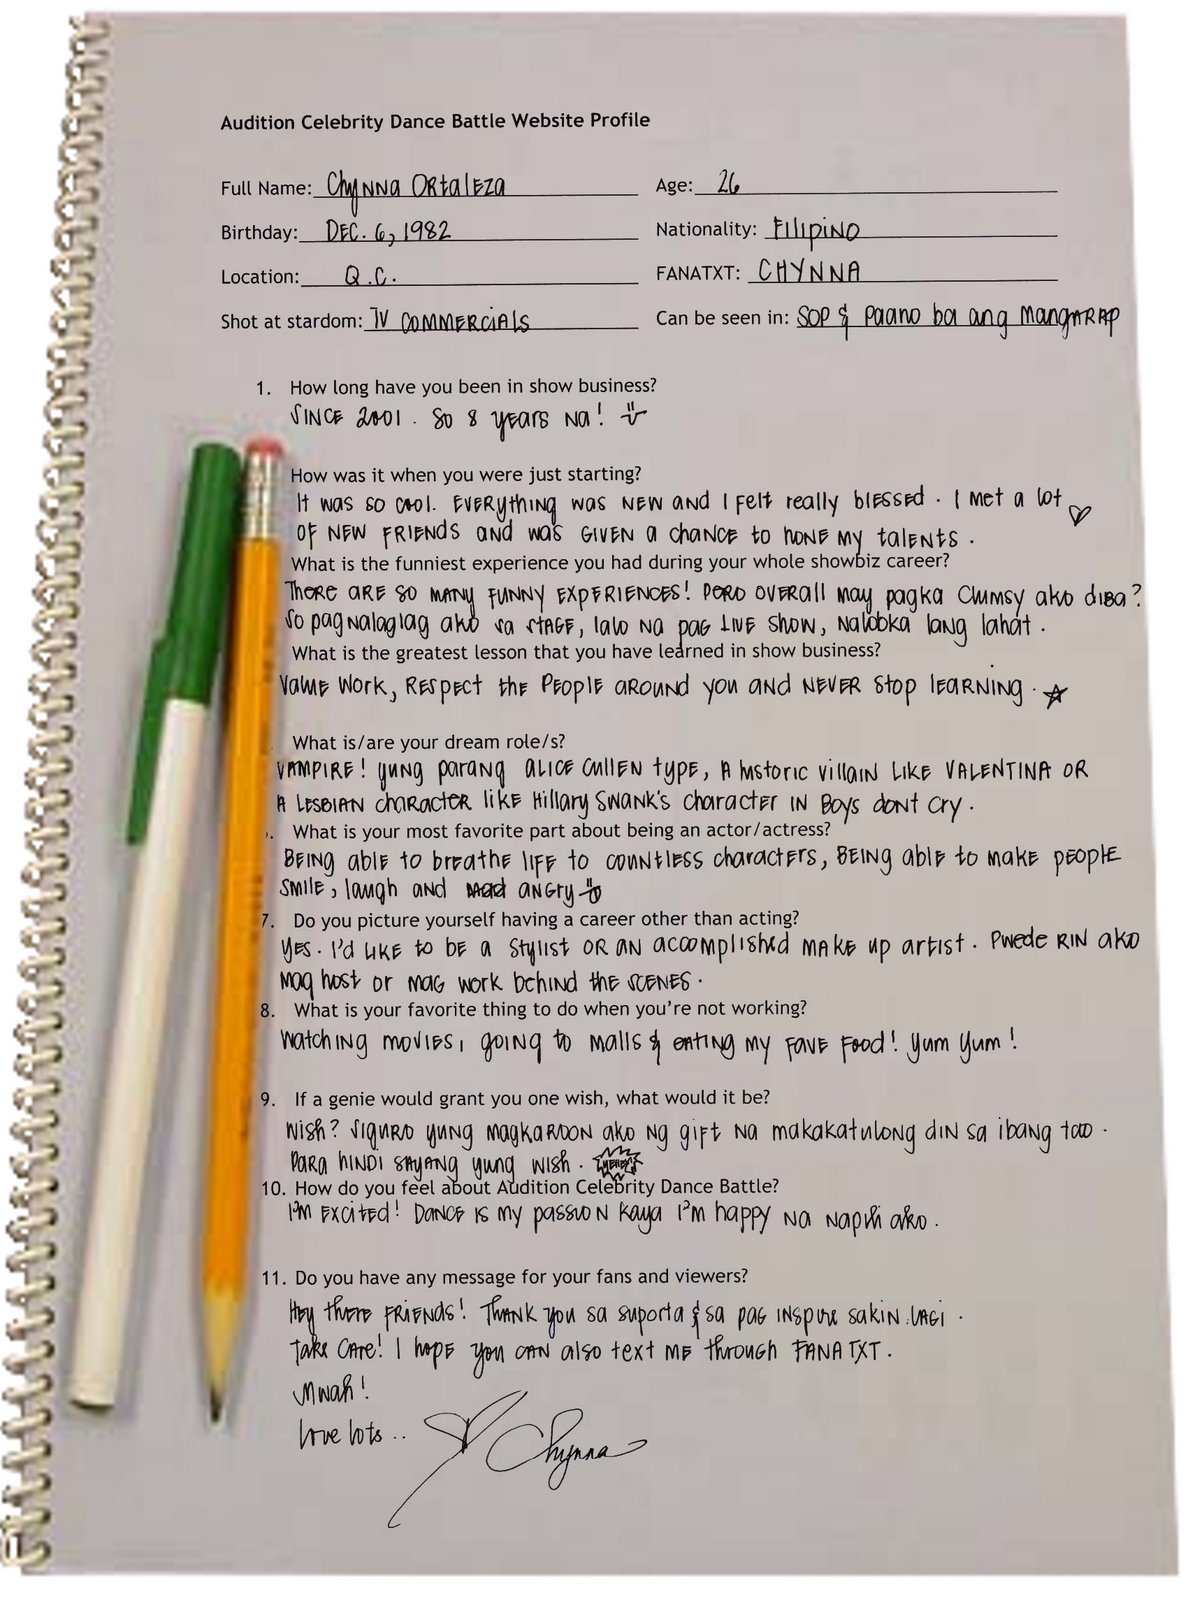 Audition Celebrity Dance Battle Website Profile
Full Name: Chynna Ortaleza Age: 26
Birthday: DEC. 6, 1982 Nationality: Filipino
Location: Q.C. FANATXT: CHYNNA
Shot at stardom: TV COMMERCIALS Can be seen in: SOP & Paano ba ang MangARAP
1. How long have you been in show business?
SINCE 2001. So 8 years na!
How was it when you were just starting?
It was so cool. Everything was new and I felt really blessed. I met a lot
of new friends and was given a chance to hone my talents.
What is the funniest experience you had during your whole showbiz career?
There are so many funny experiences! Pero overall may pagka clumsy ako diba?
So pag nalaglag ako sa stage, lalo na pag LIVE show, nalobka lang lahat.
What is the greatest lesson that you have learned in show business?
Value work, respect the people around you and never stop learning.
What is/are your dream role/s?
VAMPIRE! yung parang Alice Cullen type, a historic villain like Valentina or
a lesbian character like Hillary Swank's character in Boys dont cry.
. What is your most favorite part about being an actor/actress?
Being able to breathe life to countless characters, being able to make people
smile, laugh and mad angry
7. Do you picture yourself having a career other than acting?
Yes. I'd like to be a stylist or an accomplished make up artist. Pwede rin ako
mag host or mag work behind the scenes.
8. What is your favorite thing to do when you're not working?
Watching movies, going to malls & eating my fave food! Yum Yum!
9. If a genie would grant you one wish, what would it be?
Wish? Siguro yung magkaroon ako ng gift na makakatulong din sa ibang tao.
Para hindi sayang yung wish.
10. How do you feel about Audition Celebrity Dance Battle?
I'm excited! Dance is my passion kaya I'm happy na napili ako.
11. Do you have any message for your fans and viewers?
Hey there friends! Thank you sa suporta & sa pag inspire sakin lagi.
Take care! I hope you can also text me through FANATXT.
Mwah!
Love lots..
Chynna